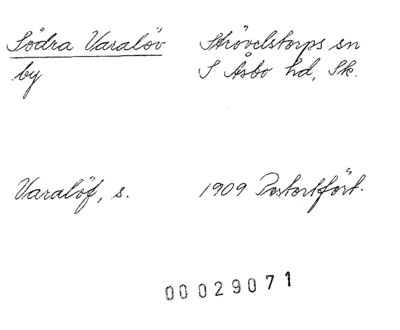 Södra Varalöv
by
Strövelstorps sn
S Åsbo hd, Sk.
Varalöf, s.
1909 Postortfört.
00029071